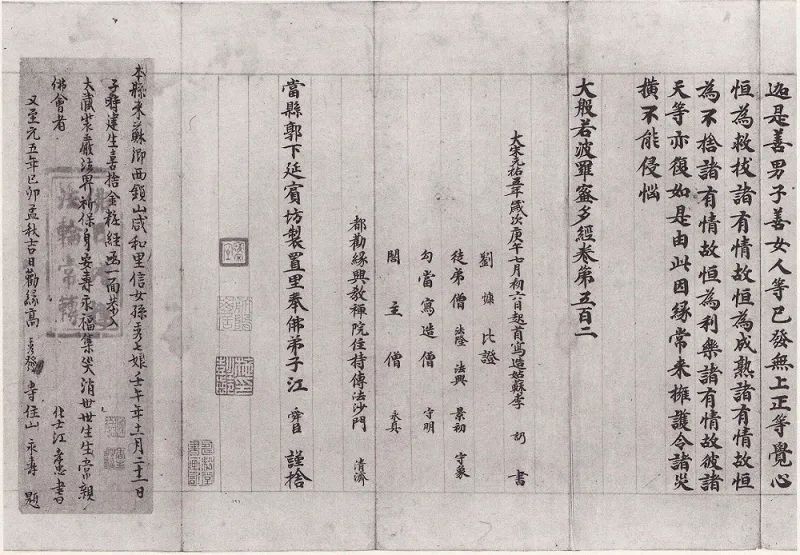 迦是善男子善女人等已發無上正等覺心
恒為救拔諸有情故恒為成熟諸有情故恒
為不捨諸有情故恒為利樂諸有情故彼諸
天等亦復如是由此因緣常來擁護令諸災
撗不能侵惱
大般若波羅蜜多經卷第五百二
大宋元祐五年歲次庚午七月初六日起首寫造姑蘇李 訪 書
劉 據 比證
徒弟僧 法隆 法興 景初 守象
勾當寫造僧 守明
閣主僧 永真
都勸緣興教禪院住持傳法沙門 清濟
當縣郭下延賓坊製置里奉佛弟子江 舜臣 謹捨
本縣来蘇鄉西鎖山咸和里信女孫彥七娘壬午年十一月二十一日
子時建生喜捨金粧經函一面恭入
大藏裝嚴法界祈保身安壽永福集災消世世生生常親
佛會者 化士江 忠書
又至元五年己卯孟秋吉日勸緣高 寺住山 永壽 題
法輪常轉